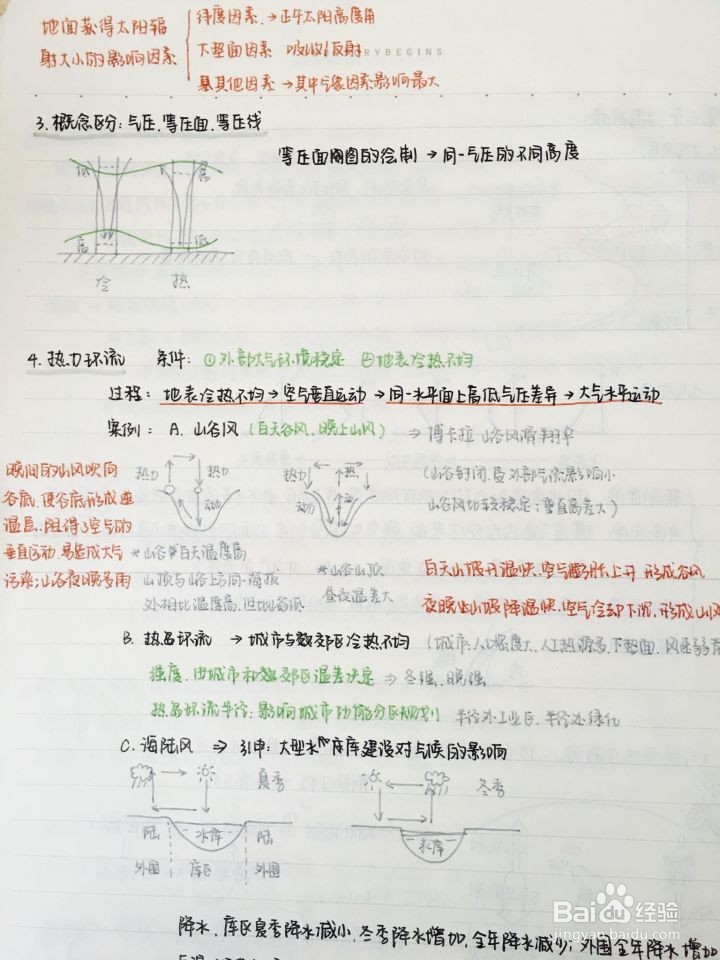 地面获得太阳辐
射大小的影响因素
纬度因素 → 正午太阳高度角
下垫面因素 吸收/反射
其他因素 → 其中气象因素影响最大
RYBEGINS
3. 概念区分：气压、等压面、等压线
等压面图的绘制 → 同一气压的不同高度
低 高
高 低
冷 热
4. 热力环流 条件：①外部大气环境稳定 ②地表冷热不均
过程：地表冷热不均 → 空气垂直运动 → 同一水平面上高低气压差异 → 大气水平运动
案例：A. 山谷风（白天谷风，晚上山风） ⇒ 博卡拉 山谷风滑翔伞
（山谷封闭，受外部气流影响小
山谷风比较稳定；垂直高差大）
热力 热力 动力
热力 热 动力
晚间的山风吹向
谷底，使谷底形成逆
温层，阻碍空气的
垂直运动，易造成大气
污染；山谷夜晚多雨
*山谷白天温度高
山顶与谷上方同一海拔
处相比温度高，但比谷底
*山谷山顶
昼夜温差大
白天山坡升温快，空气膨胀上升 形成谷风
夜晚山坡降温快，空气冷却下沉，形成山风
B. 热岛环流 → 城市与郊区冷热不均（城市：人口密度大，人工热源多，下垫面，风速
强度，由城市和郊区温差决定 ⇒ 冬强、晚强
热岛环流半径：影响城市功能分区规划 半径外工业区，半径处绿化
C. 海陆风 ⇒ 引申：大型水库建设对气候的影响
夏季 冬季
陆 水库 陆 水库
外围 库区 外围
降水，库区夏季降水减少，冬季降水增加，全年降水减少；外围全年降水增加
Baidu 经验
jingyan.baidu.com